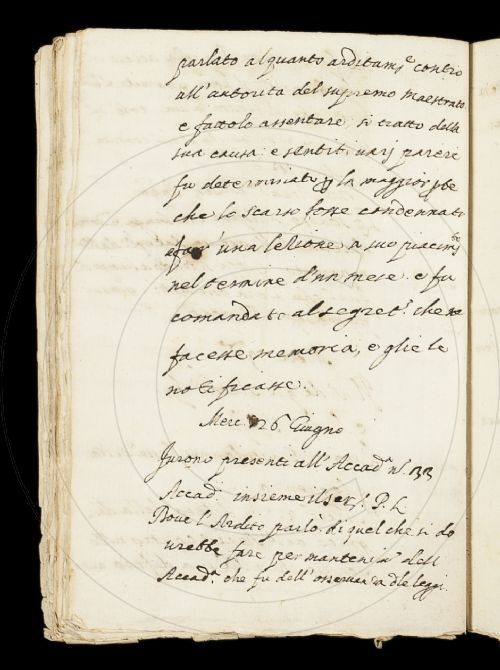 parlato alquanto arditam.e contro
all'autorita del supremo Maestrato
e fattolo assentare si tratto della
sua causa: e sentiti varj parere
fu determinato p la maggior pte
che lo scarso fosse condennato
a far una lezione a suo piacim.to
nel termine d'un mese. e fu
comandato al segret.o che ne
facesse memoria, e glie le
notificasse.
Merc. 26 Giugno
Furono presenti all'Accad.a n.o 33
Accad. insieme il ser. P. L.
Dove l'Ardito parlò di quel che si do
urebbe fare per mantenim.to dell
Accad.a che fu dell'osservanza dle leggi.